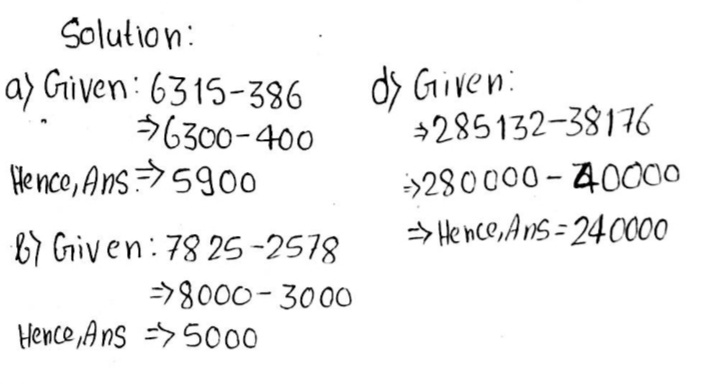 Solution:
a) Given: 6315-386
⇒6300-400
Hence, Ans:⇒5900
b) Given: 7825-2578
⇒8000-3000
Hence, Ans ⇒5000
d) Given:
⇒285132-38176
⇒280000-40000
⇒Hence, Ans=240000